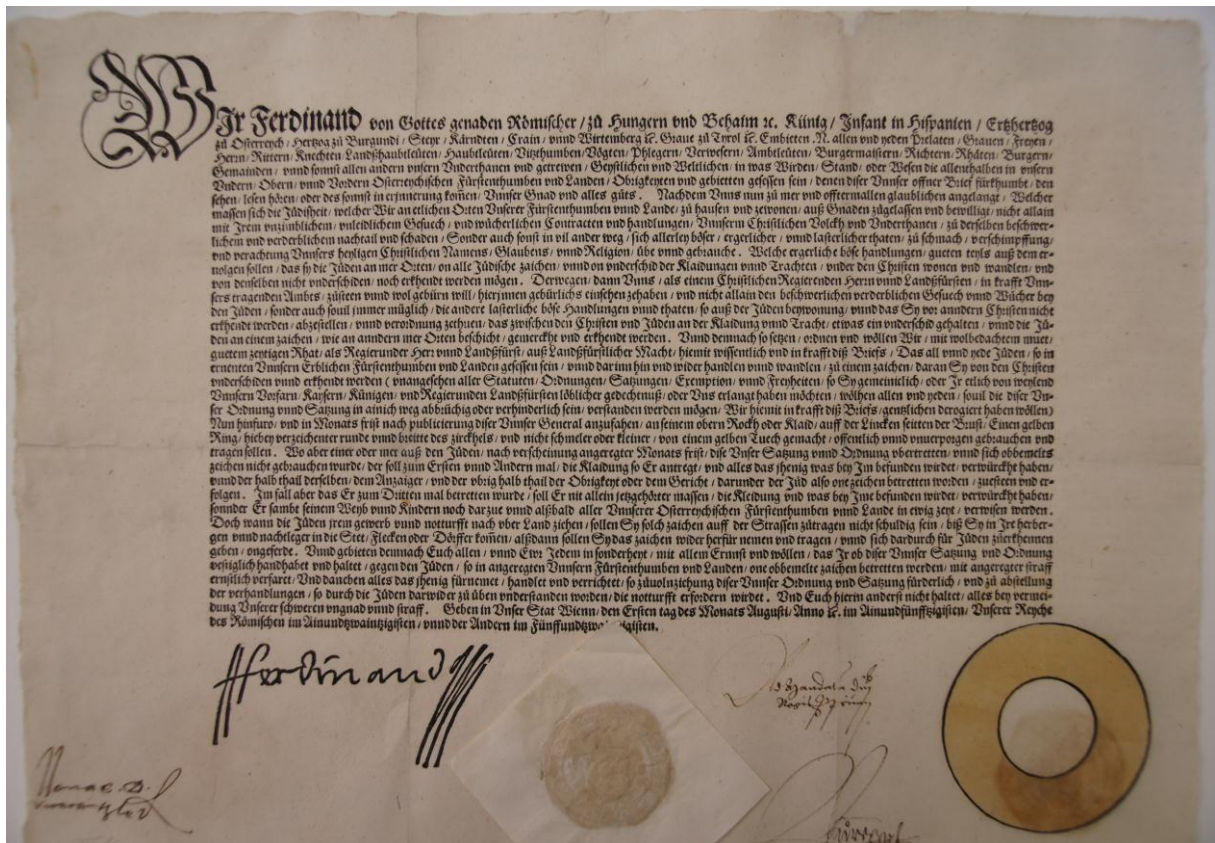 WIr Ferdinand von Gottes genaden Römischer / zů Hungern vnd Behaim ꝛc. Künig / Infant in Hispanien / Ertzhertzog
zů Osterreych / Hertzog zů Burgundi / Steyr / Kärndten / Crain / vnnd Wirtemberg ꝛc. Graue zů Tyrol ꝛc. Embieten N. allen vnd yeden Prelaten / Grauen / Freyen /
Herrn / Rittern / Knechten / Landßhaubtleüten / Haubtleüten / Vitzthumben / Vögten / Phlegern / Verwesern / Ambtleüten / Burgermaistern / Richtern / Rhäten / Burgern /
Gemainden / vnnd sonnst allen andern vnsern Vnderthanen vnd getrewen / Geystlichen vnd Weltlichen / in was Wirden / Stand / oder Wesen die allenthalben in vnsern
Vndern / Obern / vnnd Vordern Osterreychischen Fürstenthumben vnd Landen / Obrigkeyten vnd gebietten gesessen sein / denen diser Vnnser offner Brief fürkhumbt / den
sehen / lesen hören / oder des sonnst in erjnnerung komen / Vnnser Gnad vnd alles gůts. Nachdem Vnns nun zů mer vnd offtermallen glaublichen angelangt / Welcher
massen sich die Jüdisheit / welcher Wir an etlichen Orten Vnserer Fürstenthumben vnnd Lande / zů hausen vnd zewonen / auß Gnaden zůgelassen vnd bewilligt / nicht allain
mit Jrem vnzimblichem / vnleidlichem Gesuech / vnd wücherlichen Contracten vnd handlungen / Vnnserm Christlichen Volckh vnd Vnderthanen / zů derselben beschwer-
lichem vnd verderblichem nachtail vnd schaden / Sonder auch sonst in vil ander weg / sich allerley böser / ergerlicher / vnnd lasterlicher thaten / zů schmach / verschimpffung /
vnd verachtung Vnnsers heyligen Christlichen Namens / Glaubens / vnnd Religion / übe vnnd gebrauche. Welche ergerliche böse handlungen / gueten teyls auß dem er-
uolgen sollen / das sy die Jüden an mer Orten / on alle Jüdische zaichen / vnnd on vnderschid der Klaidungen vnnd Trachten / vnder den Christen wonen vnd wandlen / vnd
von denselben nicht vnderschiden / noch erkhendt werden mögen. Derwegen / dann Vnns / als einem Christlichen Regierenden Herrn vnnd Landßfürsten / in krafft Vnn-
sers tragenden Ambts / zůsteen vnnd wol gebürn will / hierjnnen gebürlichs einsehen zehaben / vnd nicht allain den beschwerlichen verderblichen Gesuech vnnd Wücher bey
den Jüden / sonder auch souil jmmer müglich / die andere lasterliche böse Handlungen vnnd thaten / so auß der Jüden beywonung / vnnd das Sy vor anndern Christen nicht
erkhendt werden / abzestellen / vnnd verordnung zethuen / das zwischen den Christen vnd Jüden an der Klaidung vnnd Tracht / etwas ein vnderschid gehalten / vnnd die Jü-
den an einem zaichen / wie an anndern mer Orten beschicht / gemerckht vnd erkhendt werden. Vnnd demnach so setzen / ordnen vnd wöllen Wir / mit wolbedachtem muet /
guetem zeytigen Rhat / als Regierunder Herr vnnd Landßfürst / auß Landßfürstlicher Macht / hiemit wissentlich vnd in krafft diß Briefs / Das all vnnd yede Jüden / so in
ernenten Vnnsern Erblichen Fürstenthumben vnd Landen gesessen sein / vnnd darinn hin vnd wider handlen vnnd wandlen / zů einem zaichen / daran Sy von den Christen
vnderschiden vnnd erkhendt werden ( vnangesehen aller Statuten / Ordnungen / Satzungen / Exemption / vnnd Freyheiten / so Sy gemeinitlich / oder Jr etlich von weylend
Vnnsern Vorfarn / Kaysern / Künigen / vnd Regierunden Landßfürsten löblicher gedechtnuß / oder Vns erlangt haben möchten / wölhen allen vnd yeden / souil die diser Vn-
ser Ordnung vnnd Satzung in ainich weg abbrüchig oder verhinderlich sein / verstanden werden mögen / Wir hiemit in krafft diß Briefs / gentzlichen derogiert haben wöllen )
Nun hinfuro / vnd in Monats frist nach publicierung diser Vnnser General anzufahen / an seinem obern Rockh oder Klaid / auff der Lincken seitten der Brust / Einen gelben
Ring / hiebey verzeichenter runde vnnd breitte des zirckhels / vnd nicht schmeler oder kleiner / von einem gelben Tuech gemacht / offentlich vnnd vnuerporgen gebrauchen vnd
tragen sollen. Wo aber einer oder mer auß den Jüden / nach verscheinung angeregter Monats frist / dise Vnser Satzung vnnd Ordnung vbertretten / vnnd sich obbemelts
zeichen nicht gebrauchen wurde / der soll zum Ersten vnnd Andern mal / die Klaidung so Er antregt / vnd alles das jhenig was bey Jm befunden wirdet / verwürckht haben /
vnnd der halb thail derselben / dem Anzaiger / vnd der vbrig halb thail der Obrigkeyt oder dem Gericht / darunder der Jüd also one zeichen betretten worden / zuesteen vnd er-
folgen. Im fall aber das Er zum Dritten mal betretten wurde / soll Er nit allein jetzgehörter massen / die Kleidung vnd was bey Jme befunden wirdet / verwürckht haben /
sonnder Er sambt seinem Weyb vnnd Kindern noch darzue vnnd alßbald aller Vnnserer Osterreychischen Fürstenthumben vnnd Lande in ewig zeyt / verwisen werden.
Doch wann die Jüden jrem gewerb vnnd notturfft nach vber Land ziehen / sollen Sy solch zaichen auff der Strassen zůtragen nicht schuldig sein / biß Sy in Jre herber-
gen vnnd nachtleger in die Stet / Flecken oder Dörffer komen / alßdann sollen Sy das zaichen wider herfür nemen vnd tragen / vnnd sich dardurch für Jüden zuerkhennen
geben / ongeferde. Vnnd gebieten demnach Euch allen / vnnd Ewr Jedem in sonderheyt / mit allem Ernnst vnd wöllen / das Jr ob diser Vnnser Satzung vnd Ordnung
vestiglich handhabet vnd haltet / gegen den Jüden / so in angeregten Vnnsern Fürstenthumben vnd Landen / one obbemelte zaichen betretten werden / mit angeregter straff
ernstlich verfaret / Vnd daneben alles das jhenig fürnemet / handlet vnd verrichtet / so zůuolnziehung diser Vnnser Ordnung vnd Satzung fürderlich / vnd zů abstellung
der verhandlungen / so durch die Jüden darwider zů üben vnderstanden worden / die notturfft erfordern wirdet. Vnd Euch hierin anderst nicht haltet / alles bey vermei-
dung Vnserer schweren vngnad vnnd straff. Geben in Vnser Stat Wienn / den Ersten tag des Monats Augusti / Anno ꝛc. im Ainundfünfftzigisten / Vnserer Reyche
des Römischen im Ainundtzwaintzigisten / vnnd der Andern im Fünffundtzwaintzigisten.
Ferdinand